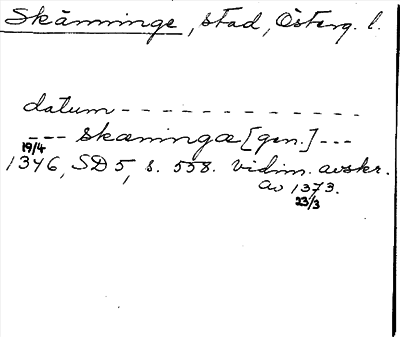 Skänninge, stad, Österg. l.
datum - - - - - - - - - - - - -
--- skæningæ [gen.] ---
19/4
1346, SD 5, s. 558. vidim. avskr.
av 1373.
23/3